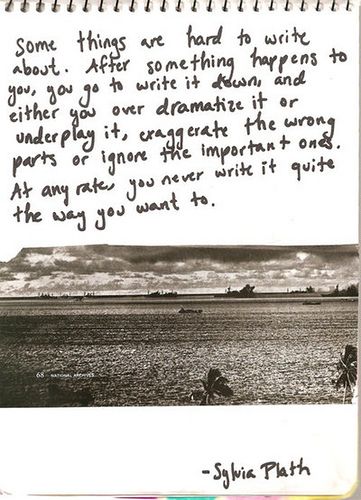 some things are hard to write
about. After something happens to
you, you go to write it down, and
either you over dramatize it or
underplay it, exaggerate the wrong
parts or ignore the important ones.
At any rate, you never write it quite
the way you want to.
68 NATIONAL ARCHIVES
- Sylvia Plath